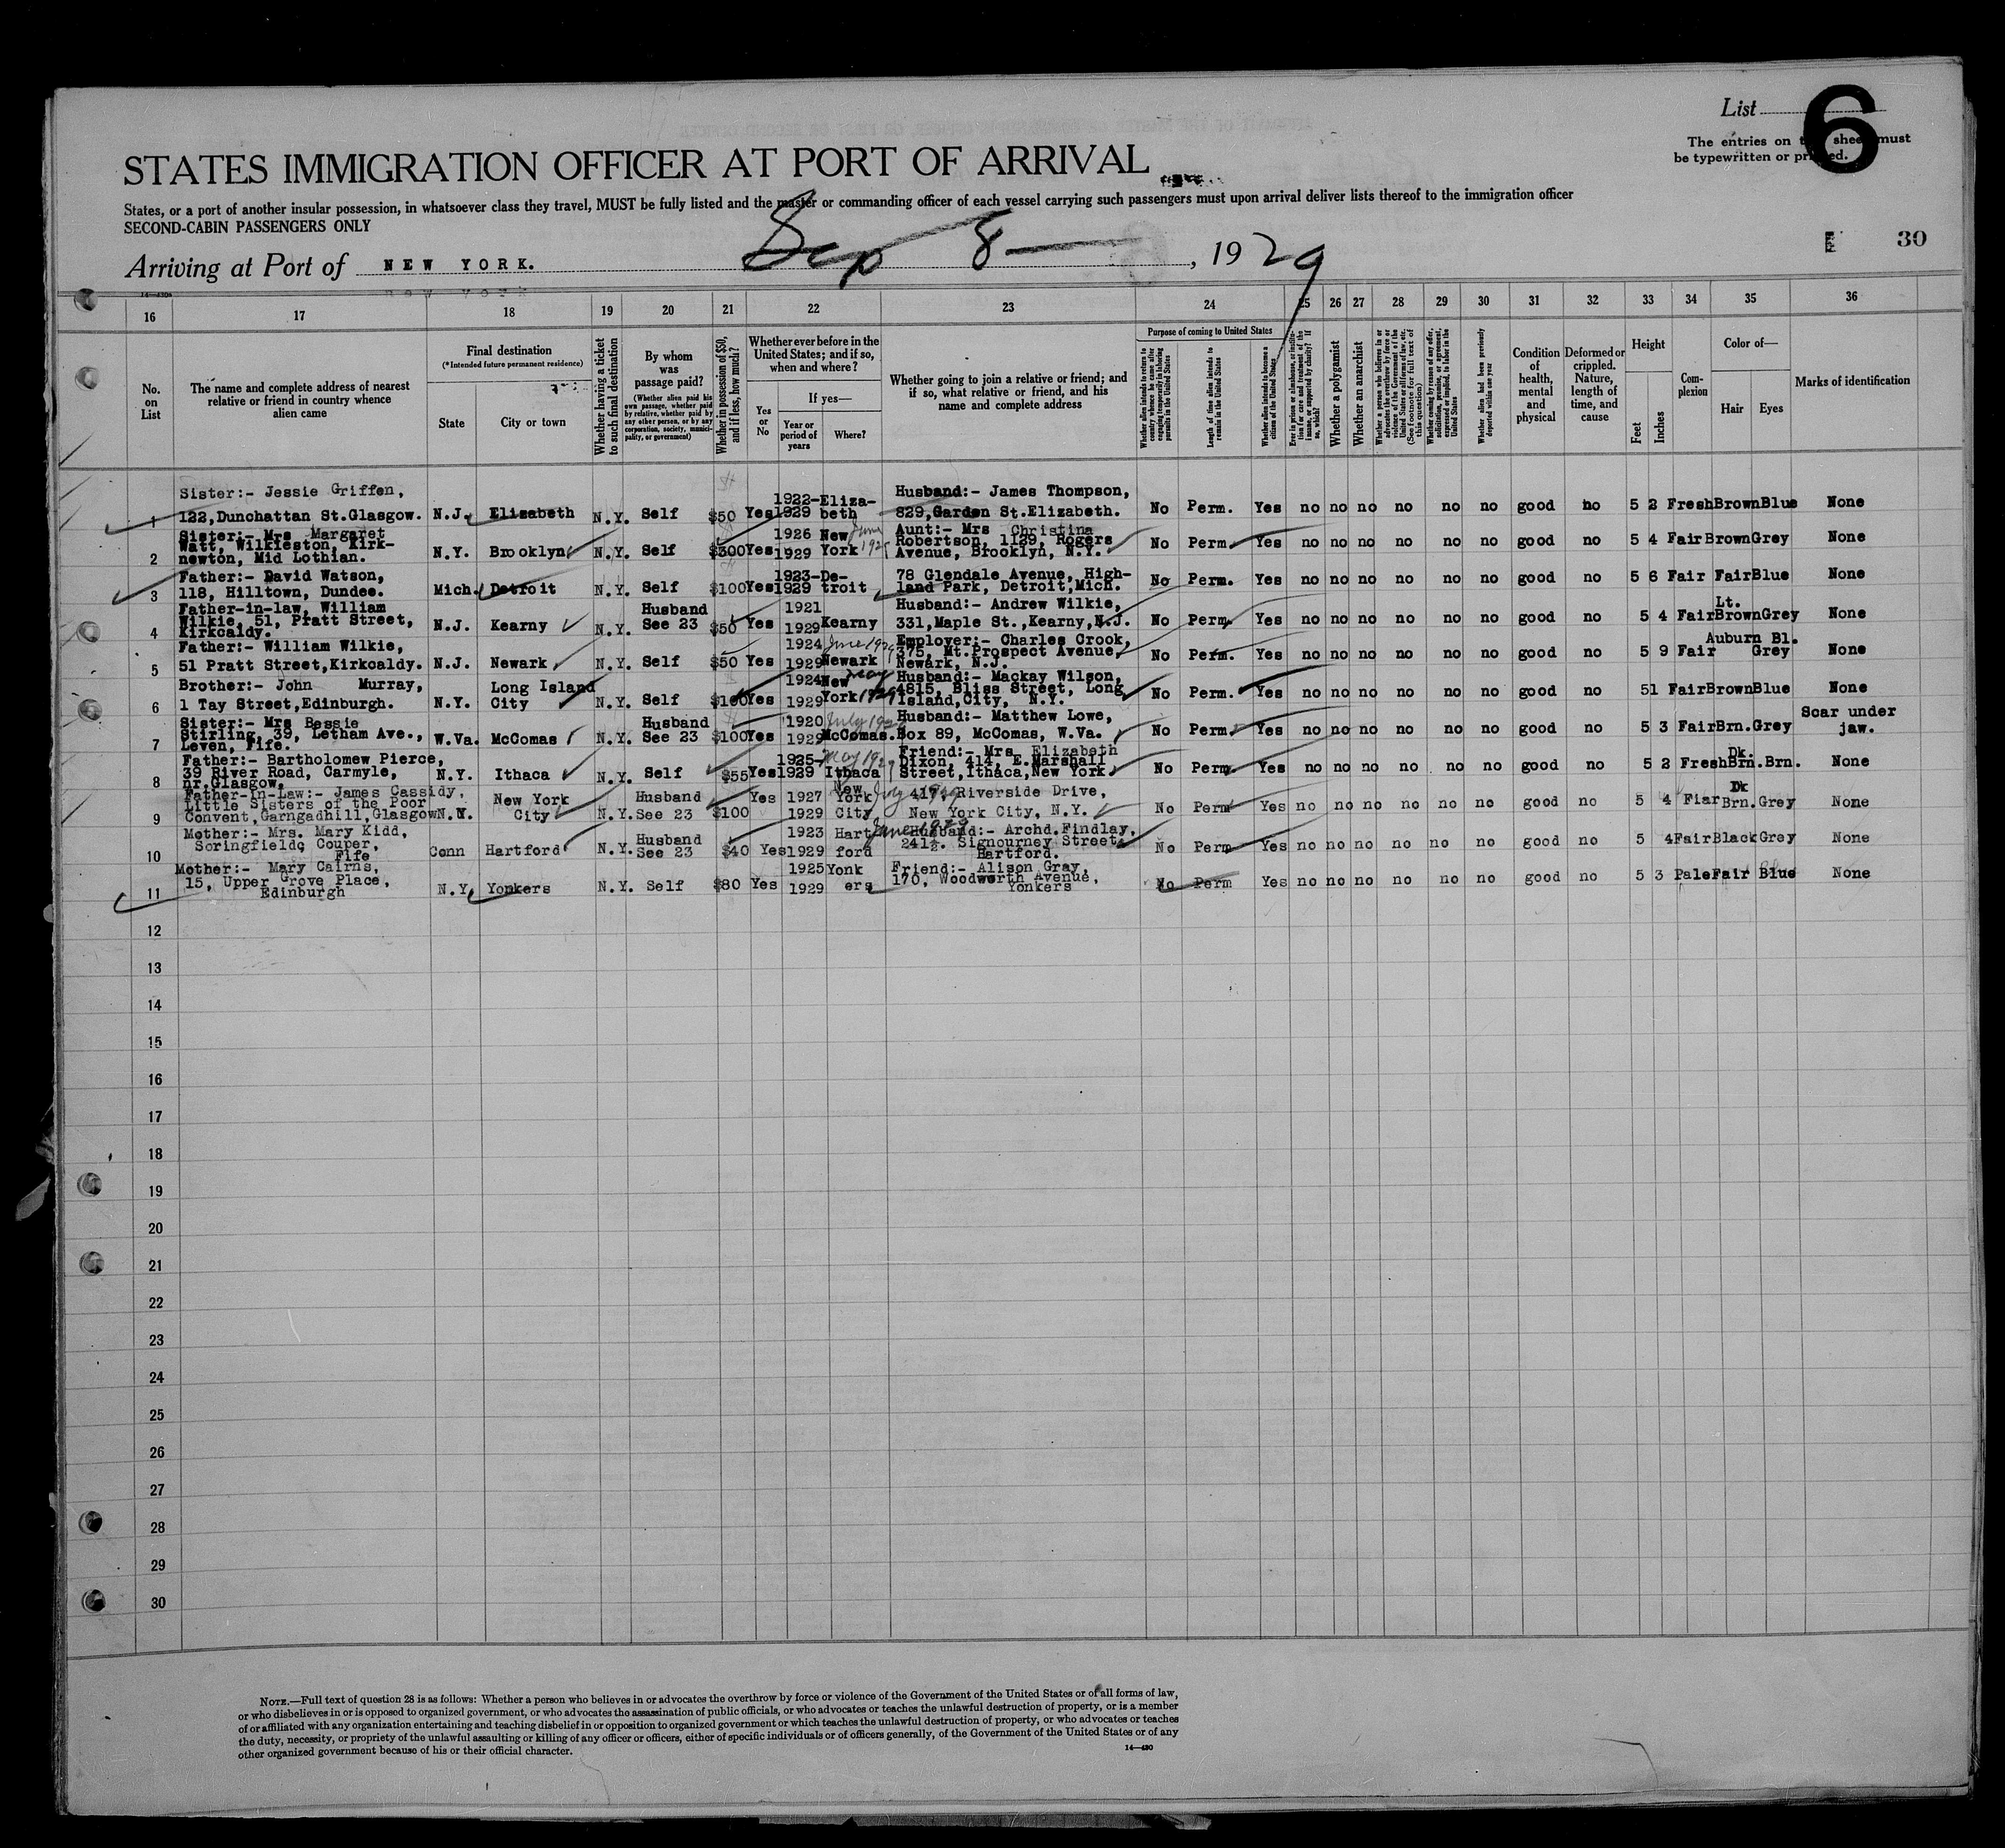 List 6
The entries on this sheet must
be typewritten or printed.
STATES IMMIGRATION OFFICER AT PORT OF ARRIVAL
States, or a port of another insular possession, in whatsoever class they travel, MUST be fully listed and the master or commanding officer of each vessel carrying such passengers must upon arrival deliver lists thereof to the immigration officer
SECOND-CABIN PASSENGERS ONLY
30
Arriving at Port of NEW YORK. Sep 8 , 1929
16 17 18 19 20 21 22 23 24 25 26 27 28 29 30 31 32 33 34 35 36
No. on List
The name and complete address of nearest relative or friend in country whence alien came
Final destination
(*Intended future permanent residence)
State
City or town
Whether having a ticket to such final destination
By whom was passage paid?
(Whether alien paid his own passage, whether paid by relative, whether paid by any other person, or by any corporation, society, municipality, or government)
Whether in possession of $50, and if less, how much?
Whether ever before in the United States; and if so, when and where?
Yes or No
If yes—
Year or period of years
Where?
Whether going to join a relative or friend; and if so, what relative or friend, and his name and complete address
Purpose of coming to United States
Whether alien intends to return to country whence he came after engaging temporarily in laboring pursuits in the United States
Length of time alien intends to remain in the United States
Whether alien intends to become a citizen of the United States
Ever in prison or almshouse, or institution for care and treatment of the insane, or supported by charity? If so, which?
Whether a polygamist
Whether an anarchist
Whether a person who believes in or advocates the overthrow by force or violence of the Government of the United States or all forms of law, etc. (See footnote for full text of this question)
Whether coming by reason of any offer, solicitation, promise, or agreement, expressed or implied, to labor in the United States
Whether alien had been previously deported within one year
Condition of health, mental and physical
Deformed or crippled. Nature, length of time, and cause
Height
Feet
Inches
Complexion
Color of—
Hair
Eyes
Marks of identification
1 Sister:- Jessie Griffen, 122,Dunchattan St.Glasgow. N.J. Elizabeth N.Y. Self $50 Yes 1922-1929 Elizabeth Husband:- James Thompson, 829,Garden St.Elizabeth. No Perm. Yes no no no no no no good no 5 2 Fresh Brown Blue None
2 Sister:- Mrs Margaret Watt, Wilkieston, Kirknewton, Mid Lothian. N.Y. Brooklyn N.Y. Self $300 Yes 1926 1929 New York June Aunt:- Mrs Christina Robertson, 1139, Rogers Avenue, Brooklyn, N.Y. No Perm Yes no no no no no no good no 5 4 Fair Brown Grey None
3 Father:- David Watson, 118, Hilltown, Dundee. Mich. Detroit N.Y. Self $100 Yes 1923-1929 Detroit 78 Glendale Avenue, Highland Park, Detroit,Mich. No Perm. Yes no no no no no no good no 5 6 Fair Fair Blue None
4 Father-in-law, William Wilkie, 51, Pratt Street, Kirkcaldy. N.J. Kearny N.Y. Husband See 23 $50 Yes 1921 1929 Kearny Husband:- Andrew Wilkie, 331,Maple St.,Kearny,N.J. No Perm Yes no no no no no no good no 5 4 Fair Lt. Brown Grey None
5 Father:- William Wilkie, 51 Pratt Street,Kirkcaldy. N.J. Newark N.Y. Self $50 Yes 1924 1929 June 1929 Newark Employer:- Charles Crook, 375, Mt.Prospect Avenue, Newark, N.J. No Perm. Yes no no no no no no good no 5 9 Fair Auburn Bl. Grey None
6 Brother:- John Murray, 1 Tay Street,Edinburgh. N.Y. Long Island City N.Y. Self $100 Yes 1924 1929 New York May 1929 Husband:- Mackay Wilson, 4815, Bliss Street, Long Island,City, N.Y. No Perm. Yes no no no no no no good no 5 1 Fair Brown Blue None
7 Sister:- Mrs Bessie Stirling, 39, Letham Ave., Leven, Fife. W.Va. McComas N.Y. Husband See 23 $100 Yes 1920 1929 July McComas. Husband:- Matthew Lowe, Box 89, McComas, W.Va. No Perm Yes no no no no no no good no 5 3 Fair Brn. Grey Scar under jaw.
8 Father:- Bartholomew Pierce, 39 River Road, Carmyle, nr.Glasgow, N.Y. Ithaca N.Y. Self $55 Yes 1925-1929 May 1929 Ithaca Friend:- Mrs Elizabeth Dixon, 414, E.Marshall Street,Ithaca,New York. No Perm Yes no no no no no no good no 5 2 Fresh Dk. Brn. Brn. None
9 Father-In-Law:- James Cassidy, Little Sisters of the Poor Convent,Garngadhill,Glasgow N.Y. New York City N.Y. Husband See 23 $100 Yes 1927 1929 New York City July 417, Riverside Drive, New York City, N.Y. No Perm Yes no no no no no no good no 5 4 Fiar Dk Brn. Grey None
10 Mother:- Mrs. Mary Kidd, Soringfield, Couper, Fife Conn Hartford N.Y. Husband See 23 $40 Yes 1923 1929 Hartford June 1929 Husband:- Archd.Findlay, 241½. Signourney Street Hartford. No Perm Yes no no no no no no good no 5 4 Fair Black Grey None
11 Mother:- Mary Cairns, 15, Upper Grove Place, Edinburgh N.Y. Yonkers N.Y. Self $80 Yes 1925 1929 Yonkers Friend:- Alison Gray, 170, Woodworth Avenue, Yonkers No Perm Yes no no no no no no good no 5 3 Pale Fair Blue None
12
13
14
15
16
17
18
19
20
21
22
23
24
25
26
27
28
29
30
NOTE.—Full text of question 28 is as follows: Whether a person who believes in or advocates the overthrow by force or violence of the Government of the United States or of all forms of law,
or who disbelieves in or is opposed to organized government, or who advocates the assassination of public officials, or who advocates or teaches the unlawful destruction of property, or is a member
of or affiliated with any organization entertaining and teaching disbelief in or opposition to organized government or which teaches the unlawful destruction of property, or who advocates or teaches
the duty, necessity, or propriety of the unlawful assaulting or killing of any officer or officers, either of specific individuals or of officers generally, of the Government of the United States or of any
other organized government because of his or their official character.
14—430